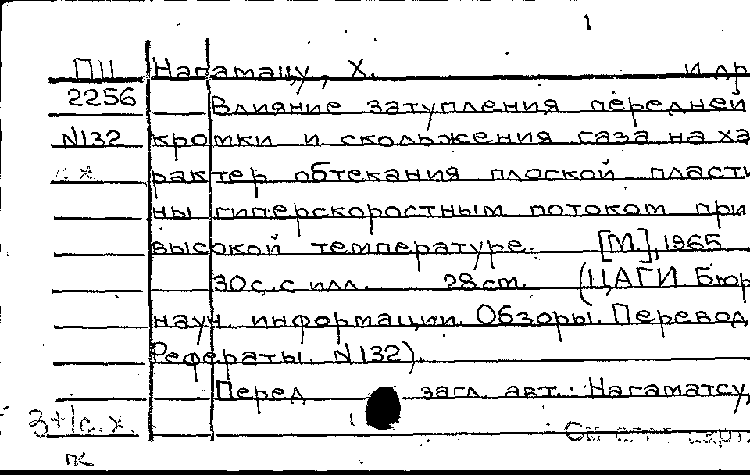 1
ПII Нагамацу, Х. и др
2256 Влияние затупления передней
N132 кромки и скольжения газа на ха
рактер обтекания плоской пласти
ны гиперскоростным потоком при
высокой температуре. [М.], 1965
30 с. с илл. 28 см. (ЦАГИ Бюр
науч информации. Обзоры. Перевод
Рефераты. N132).
Перед загл. авт.: Нагаматсу,
3+1с.х.
См
пк